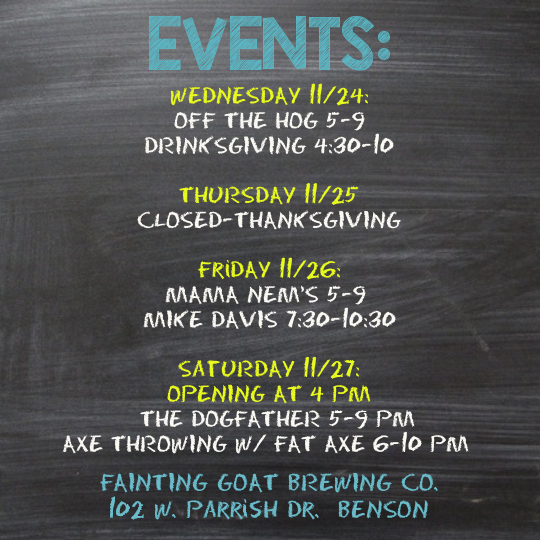 EVENTS:
WEDNESDAY 11/24:
OFF THE HOG 5-9
DRINKSGIVING 4:30-10
THURSDAY 11/25
CLOSED-THANKSGIVING
FRIDAY 11/26:
MAMA NEM'S 5-9
MIKE DAVIS 7:30-10:30
SATURDAY 11/27:
OPENING AT 4 PM
THE DOGFATHER 5-9 PM
AXE THROWING W/ FAT AXE 6-10 PM
FAINTING GOAT BREWING CO.
102 W. PARRISH DR. BENSON